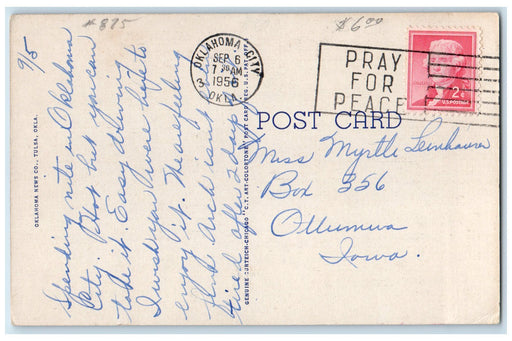 #825
$6.00
9/5
Spending nite in Oklahoma
City. Hot but you can
take it. Easy driving
I wish you were here to
enjoy it. The are feeling
fine Arch isn't
tired after 2 days
OKLAHOMA CITY
SEP 6
7 30 AM
1956
3
OKLA.
PRAY
FOR
PEACE
2¢
U.S. POSTAGE
POST CARD
Miss Myrtle
Box 356
Ottumwa
Iowa.
OKLAHOMA NEWS CO., TULSA, OKLA.
GENUINE CURTEICH-CHICAGO "C.T. ART-COLORTONE" POST CARD (REG. U.S. PAT. OFF.)